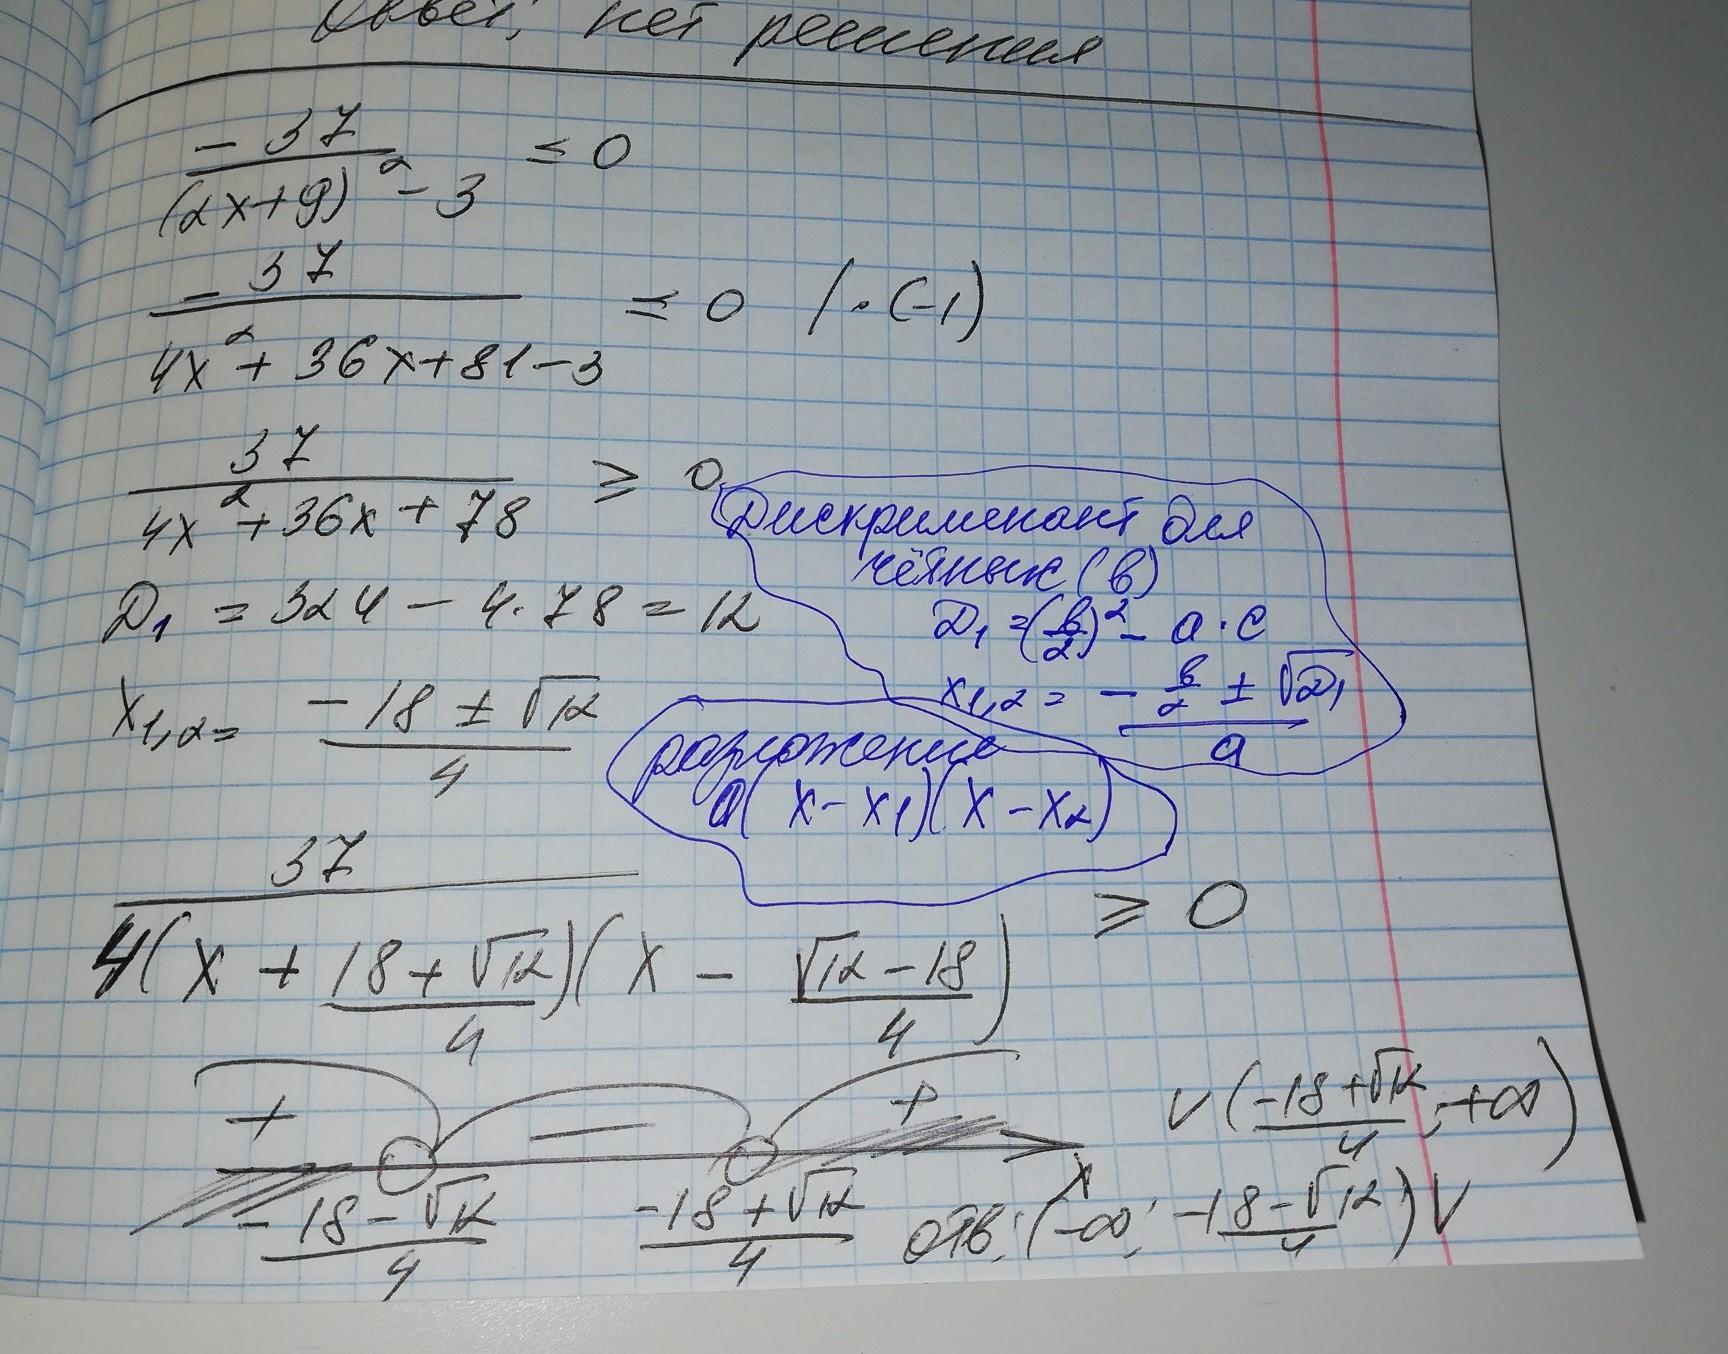 Ответ: нет решения
-37/((2x+9)² - 3) ≤ 0
-37/(4x² + 36x + 81 - 3) ≤ 0 /·(-1)
37/(4x² + 36x + 78) ≥ 0
Дискрименант для
чётных (в)
D₁ = (в/2)² - a·c
x₁,₂ = (-в/2 ± √D₁)/a
D₁ = 324 - 4·78 = 12
x₁,₂ = (-18 ± √12)/4
разложение
a(x - x₁)(x - x₂)
37/(4(x + (18+√12)/4)(x - (√12-18)/4)) ≥ 0
+ — +
x
(-18-√12)/4 (-18+√12)/4
отв: (-∞; (-18-√12)/4) ∨
∨ ((-18+√12)/4; +∞)